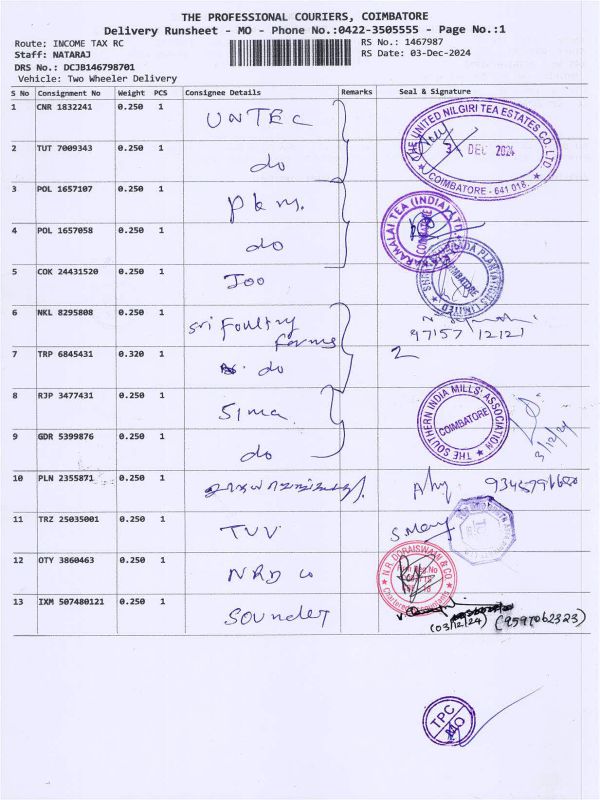 THE PROFESSIONAL COURIERS, COIMBATORE
Delivery Runsheet - MO - Phone No.:0422-3505555 - Page No.:1
Route: INCOME TAX RC RS No.: 1467987
Staff: NATARAJ RS Date: 03-Dec-2024
DRS No.: DCJB146798701
Vehicle: Two Wheeler Delivery
S No Consignment No Weight PCS Consignee Details Remarks Seal & Signature
1 CNR 1832241 0.250 1 UNTEC
THE UNITED NILGIRI TEA ESTATES CO. LTD
3 DEC 2024
COIMBATORE - 641 018.
2 TUT 7009343 0.250 1 do
3 POL 1657107 0.250 1 pkm.
TEA (INDIA) LTD
4 POL 1657058 0.250 1 do
PLANTATIONS LIMITED
COIMBATORE
5 COK 24431520 0.250 1 Joo
6 NKL 8295808 0.250 1 sri Poultry
farms
97157 12121
7 TRP 6845431 0.320 1 do 2
8 RJP 3477431 0.250 1 Sima
THE SOUTHERN INDIA MILLS' ASSOCIATION
COIMBATORE
3/12/24
9 GDR 5399876 0.250 1 do
10 PLN 2355871 0.250 1
11 TRZ 25035001 0.250 1 TVV
12 OTY 3860463 0.250 1 NRD co
N.R. DORAISWAMI & CO
13 IXM 507480121 0.250 1 Sounder
(03/12/24) (9597062323)
TPC
MO